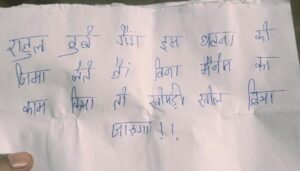 राहुल दुबे गैंग इस घटना की
जिमा लेते है। बिना मैनेज का
काम किया तो खोपड़ी खोल दिया
जाएगा !!